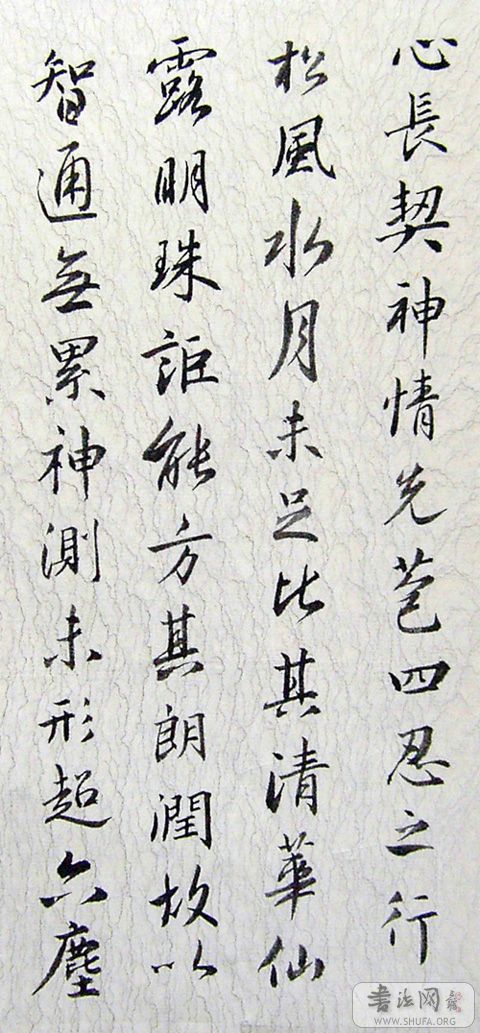 心長契神情先苞四忍之行
松風水月未足比其清華仙
露明珠詎能方其朗潤故以
智通無累神測未形超六塵
書法网
WWW.SHUFA.ORG